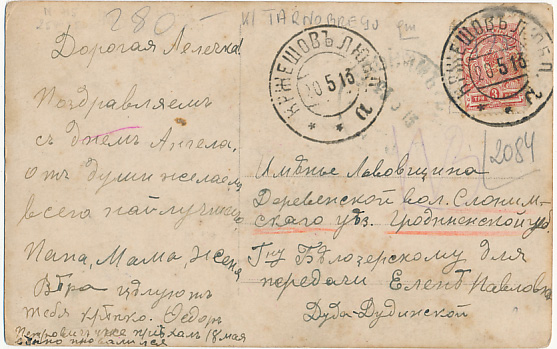 280
W TARNOBRZEGU
Дорогая Лелечка!
Поздравляемъ
съ днемъ Ангела,
отъ души желаемъ
всего наилучшаго
Папа, Мама, Женя,
Вѣра цѣлуютъ
тебя крѣпко. Ѳедоръ
Петровичъ уже пріѣхалъ 18 мая
КРЖЕШОВЪ ЛЮБЛ.
20 5 13
КРЖЕШОВЪ ЛЮБЛ.
20 5 13
2084
Имѣнье Лововщина
Деревенской вол. Слоним-
скаго уѣз. Гродненской губ
Гну Бѣлозерскому для
передачи Еленѣ Павловнѣ
Дуба-Дудинской